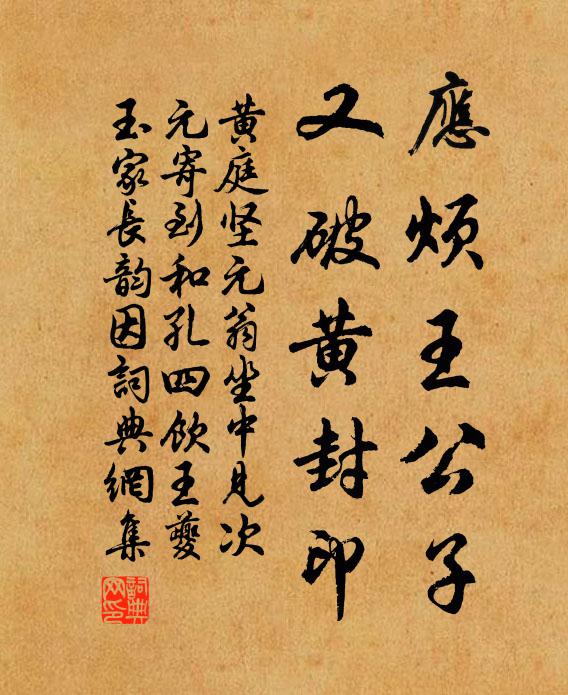 應煩王公子
又破黄封印
黄庭坚元翁坐中見次
元寄到和孔四飲王夔
玉家長韵因詞典網集
詞典
网印